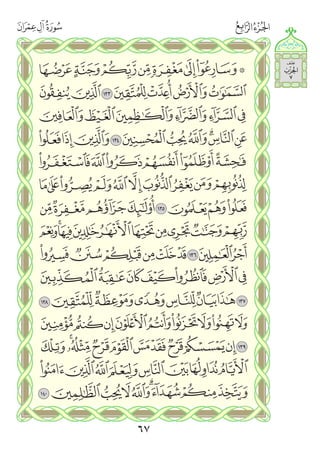 الجزء الرابع
سورة آل عمران
الجزء
۞ وَسَارِعُوٓا۟ إِلَىٰ مَغْفِرَةٍ مِّن رَّبِّكُمْ وَجَنَّةٍ عَرْضُهَا
ٱلسَّمَٰوَٰتُ وَٱلْأَرْضُ أُعِدَّتْ لِلْمُتَّقِينَ ١٣٣ ٱلَّذِينَ يُنفِقُونَ
فِى ٱلسَّرَّآءِ وَٱلضَّرَّآءِ وَٱلْكَٰظِمِينَ ٱلْغَيْظَ وَٱلْعَافِينَ
عَنِ ٱلنَّاسِ وَٱللَّهُ يُحِبُّ ٱلْمُحْسِنِينَ ١٣٤ وَٱلَّذِينَ إِذَا فَعَلُوا۟
فَٰحِشَةً أَوْ ظَلَمُوٓا۟ أَنفُسَهُمْ ذَكَرُوا۟ ٱللَّهَ فَٱسْتَغْفَرُوا۟
لِذُنُوبِهِمْ وَمَن يَغْفِرُ ٱلذُّنُوبَ إِلَّا ٱللَّهُ وَلَمْ يُصِرُّوا۟ عَلَىٰ مَا
فَعَلُوا۟ وَهُمْ يَعْلَمُونَ ١٣٥ أُو۟لَٰٓئِكَ جَزَآؤُهُم مَّغْفِرَةٌ مِّن
رَّبِّهِمْ وَجَنَّٰتٌ تَجْرِى مِن تَحْتِهَا ٱلْأَنْهَٰرُ خَٰلِدِينَ فِيهَا وَنِعْمَ
أَجْرُ ٱلْعَٰمِلِينَ ١٣٦ قَدْ خَلَتْ مِن قَبْلِكُمْ سُنَنٌ فَسِيرُوا۟
فِى ٱلْأَرْضِ فَٱنظُرُوا۟ كَيْفَ كَانَ عَٰقِبَةُ ٱلْمُكَذِّبِينَ
١٣٧ هَٰذَا بَيَانٌ لِّلنَّاسِ وَهُدًى وَمَوْعِظَةٌ لِّلْمُتَّقِينَ ١٣٨
وَلَا تَهِنُوا۟ وَلَا تَحْزَنُوا۟ وَأَنتُمُ ٱلْأَعْلَوْنَ إِن كُنتُم مُّؤْمِنِينَ
١٣٩ إِن يَمْسَسْكُمْ قَرْحٌ فَقَدْ مَسَّ ٱلْقَوْمَ قَرْحٌ مِّثْلُهُۥ وَتِلْكَ
ٱلْأَيَّامُ نُدَاوِلُهَا بَيْنَ ٱلنَّاسِ وَلِيَعْلَمَ ٱللَّهُ ٱلَّذِينَ ءَامَنُوا۟
وَيَتَّخِذَ مِنكُمْ شُهَدَآءَ وَٱللَّهُ لَا يُحِبُّ ٱلظَّٰلِمِينَ ١٤٠
٦٧